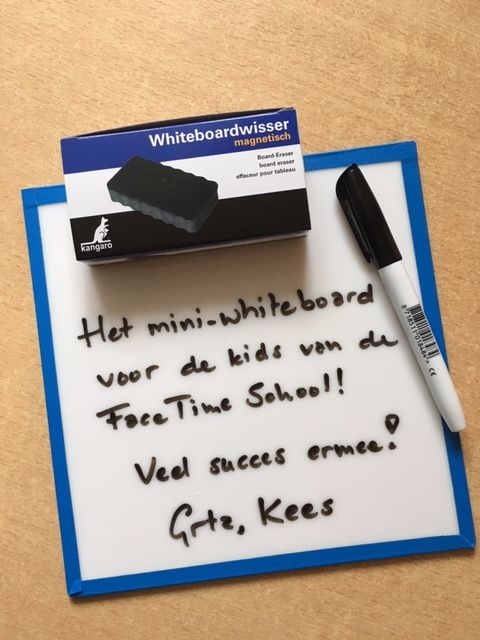 Whiteboardwisser
magnetisch
Board-Eraser
board eraser
effaceur pour tableau
kangaro
Het mini-whiteboard
voor de kids van de
FaceTime School!
Veel succes ermee!
Grtz, Kees